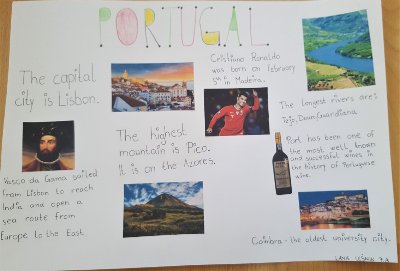 PORTUGAL
The capital
city is Lisbon.
Cristiano Ronaldo
was born on February
5th in Madeira.
The longest rivers are:
Tejo, Douro, Guardiana
The highest
mountain is Pico.
It is on the Azores.
Port has been one of
the most well known
and successful wines in
the history of Portuguese
wine.
Vasco da Gama sailed
from Lisbon to reach
India and open a
sea route from
Europe to the East.
Coimbra - the oldest university city.
LANA 7.A